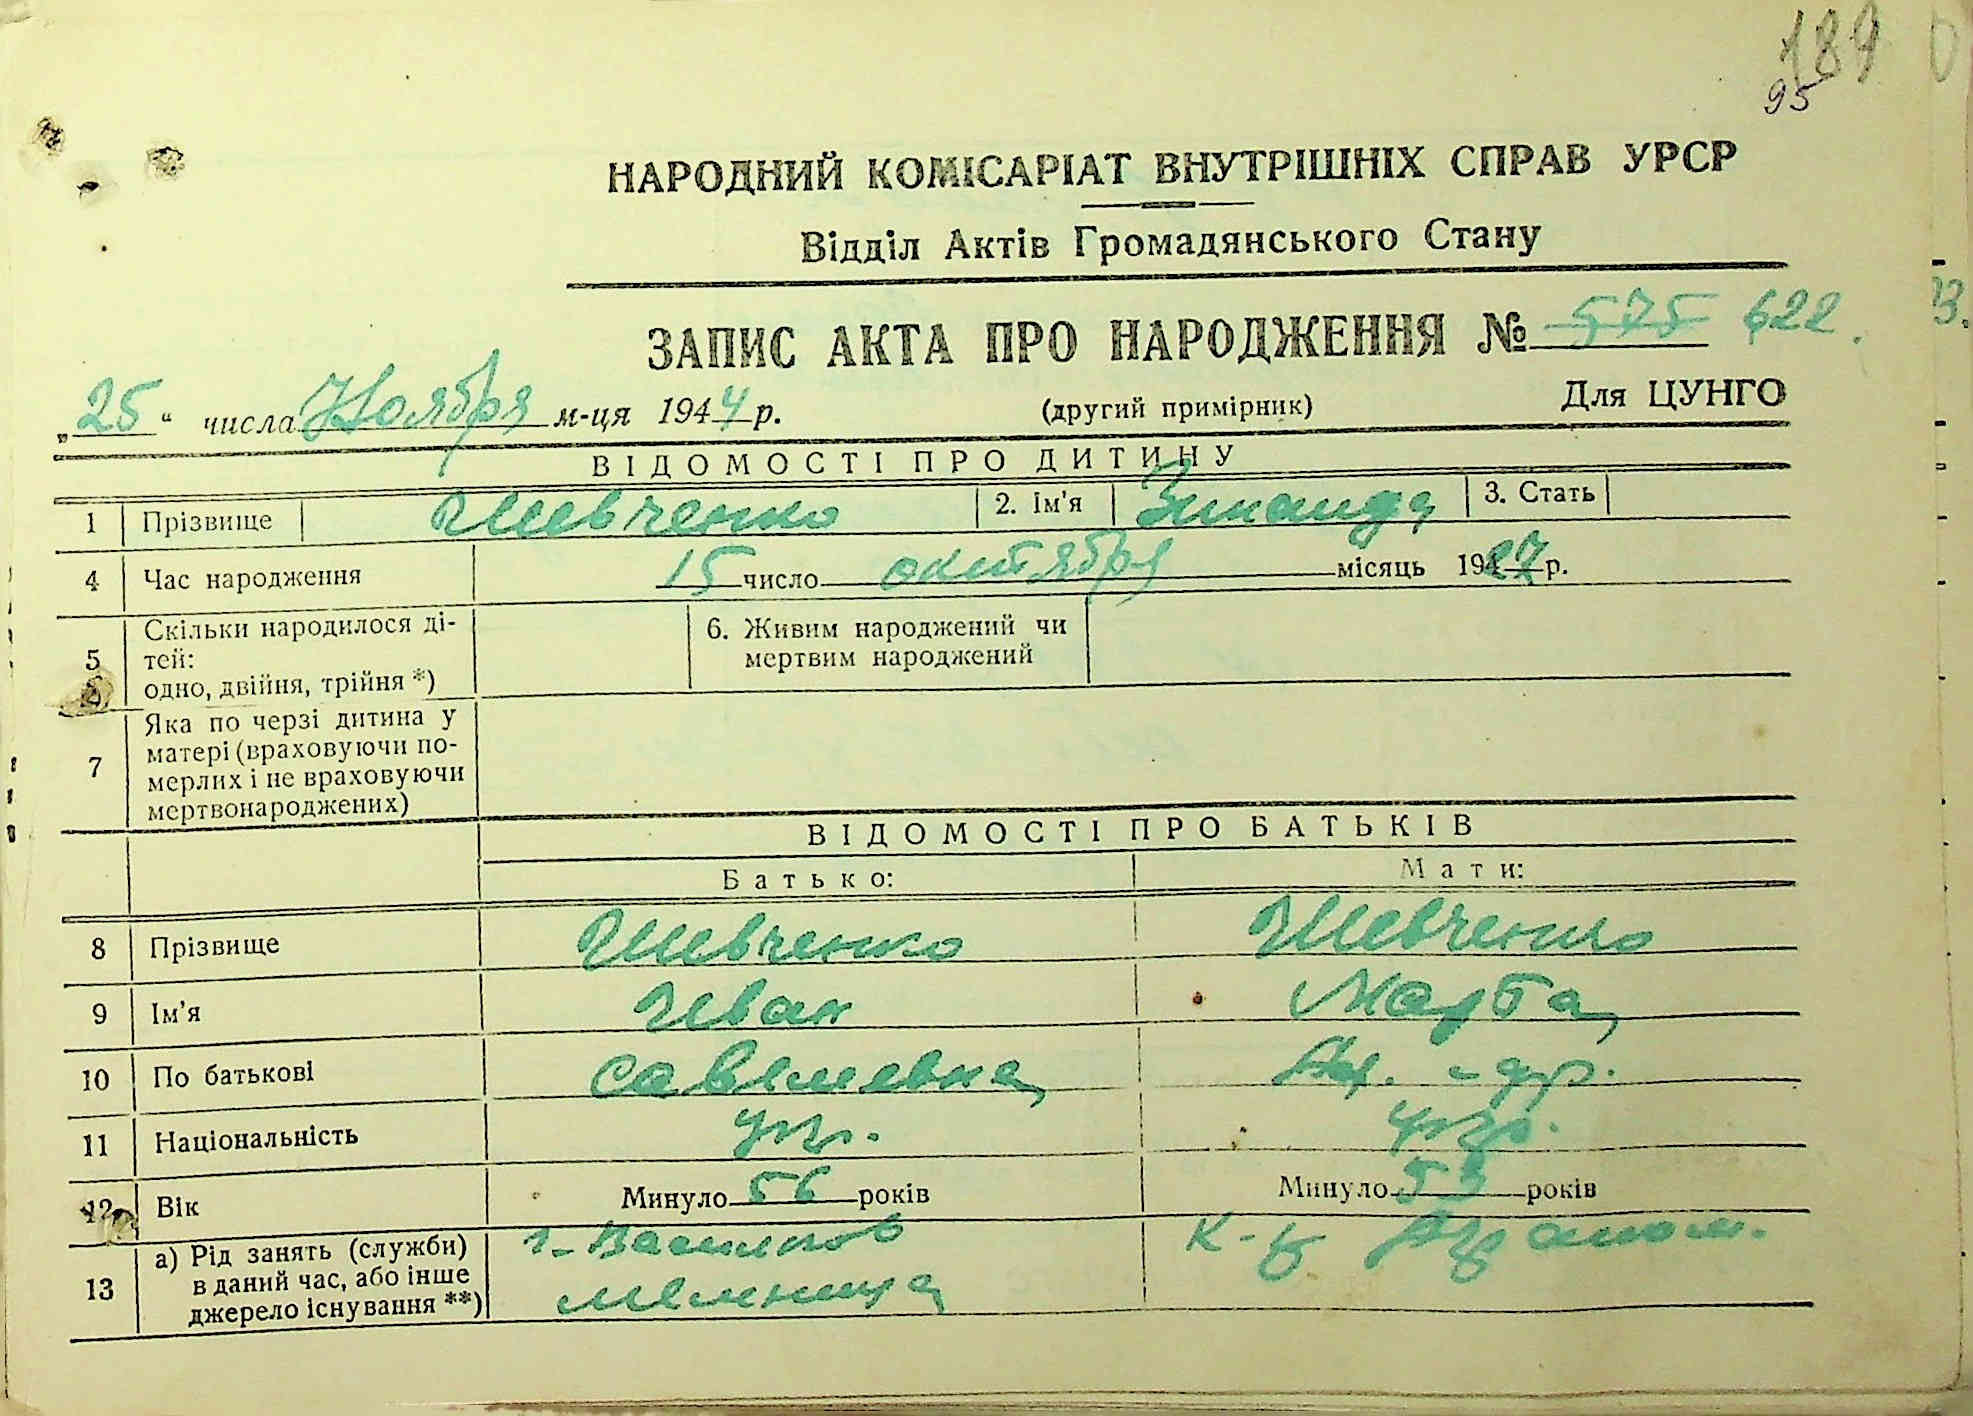 189
95
НАРОДНИЙ КОМІСАРІАТ ВНУТРІШНІХ СПРАВ УРСР
Відділ Актів Громадянського Стану
ЗАПИС АКТА ПРО НАРОДЖЕННЯ № 575 622.
„25" числа Ноября м-ця 1944 р. (другий примірник) Для ЦУНГО
ВІДОМОСТІ ПРО ДИТИНУ
1 Прізвище Шевченко 2. Ім'я Зинаида 3. Стать
4 Час народження 15 число октября місяць 1927 р.
5 Скільки народилося ді-
тей:
одно, двійня, трійня *)
6. Живим народжений чи
мертвим народжений
7 Яка по черзі дитина у
матері (враховуючи по-
мерлих і не враховуючи
мертвонароджених)
ВІДОМОСТІ ПРО БАТЬКІВ
Батько: Мати:
8 Прізвище Шевченко Шевченко
9 Ім'я Иван Марта
10 По батькові
11 Національність укр. укр.
12 Вік Минуло 56 років Минуло 53 років
13 а) Рід занять (служби)
в даний час, або інше
джерело існування **)
г. Васильков
мельница